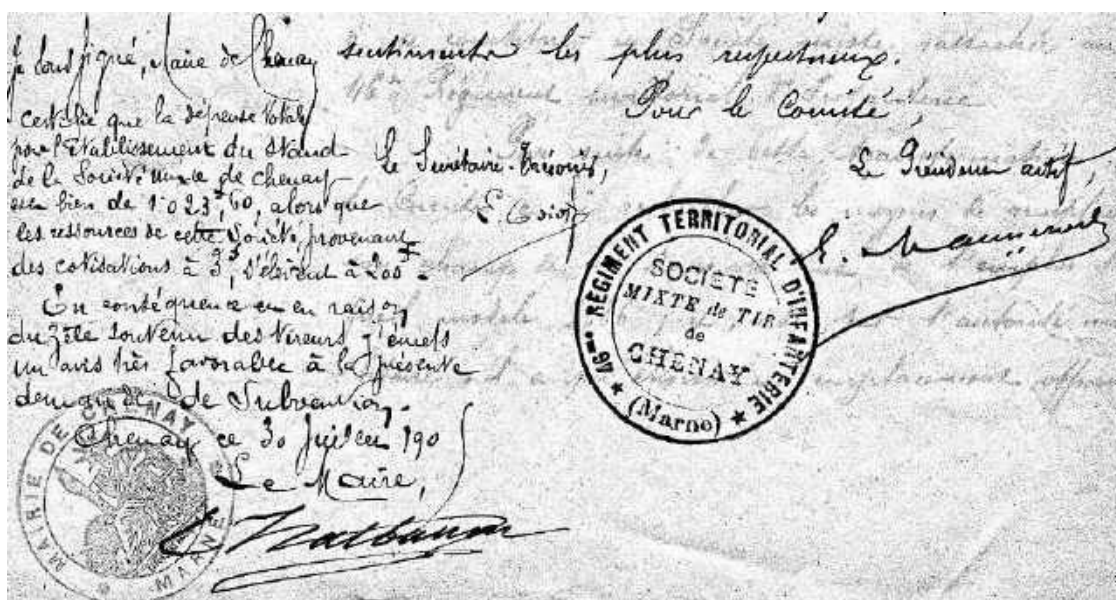 Je soussigné, Maire de Chenay
certifie que la dépense totale
pour l'établissement du Stand
de la Société mixte de Chenay
est bien de 1.023f,60, alors que
les ressources de cette Société, provenant
des cotisations à 3f, s'élèvent à 200f.
En conséquence et en raison
du zèle soutenu des tireurs j'émets
un avis très favorable à la présente
demande de Subvention.
Chenay ce 30 Juillet 190
Le Maire,
MAIRIE DE CHENAY
MARNE
sentiments les plus respectueux.
Pour le Comité,
Le Secrétaire-Trésorier,
Le Président actif,
46me RÉGIMENT TERRITORIAL D'INFANTERIE
SOCIETÉ
MIXTE de TIR
de
CHENAY
(Marne)